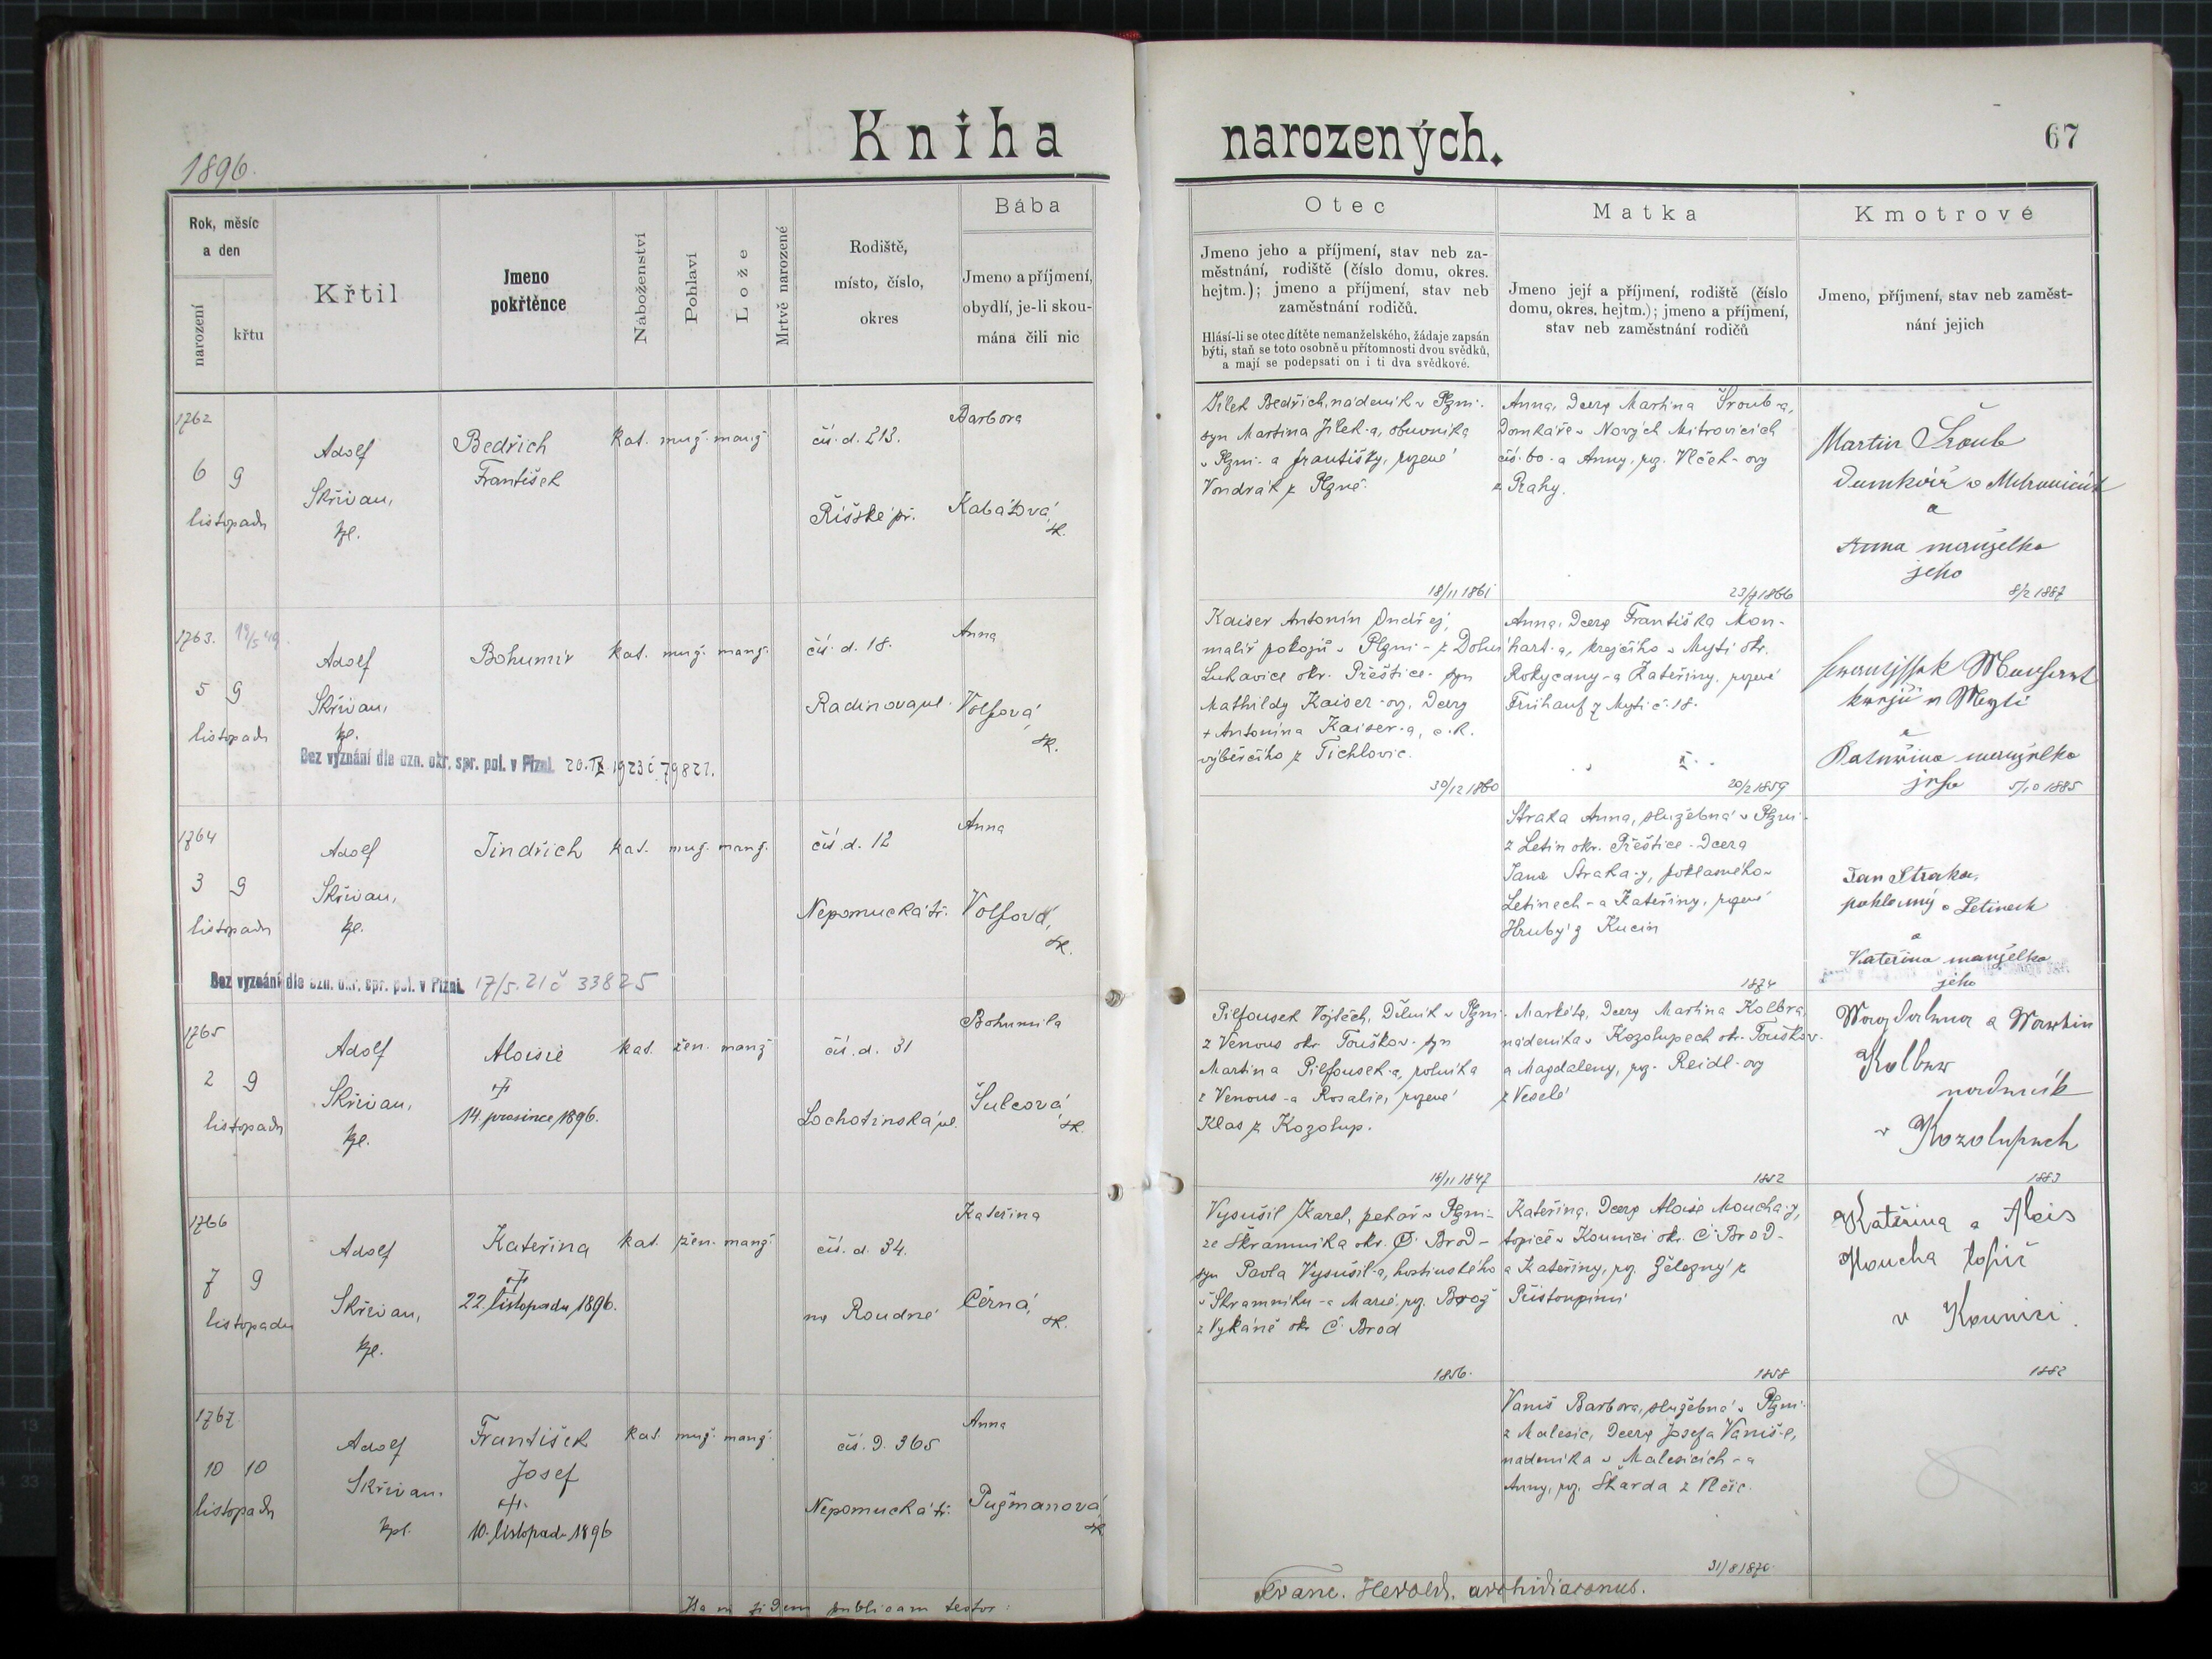 Kniha narozených.
67
1896.
Rok, měsíc
a den
narození
křtu
Křtil
Jmeno
pokřtěnce
Náboženství
Pohlaví
Lože
Mrtvě narozené
Rodiště,
místo, číslo,
okres
Bába
Jmeno a příjmení,
obydlí, je-li skou-
mána čili nic
Otec
Jmeno jeho a příjmení, stav neb za-
městnání, rodiště (číslo domu, okres.
hejtm.); jmeno a příjmení, stav neb
zaměstnání rodičů.
Hlásí-li se otec dítěte nemanželského, žádaje zapsán
býti, staň se toto osobně u přítomnosti dvou svědků,
a mají se podepsati on i ti dva svědkové.
Matka
Jmeno její a příjmení, rodiště (číslo
domu, okres. hejtm.); jmeno a příjmení,
stav neb zaměstnání rodičů
Kmotrové
Jmeno, příjmení, stav neb zaměst-
nání jejich
1762
6 9
listopadu
Adolf
Skřivan,
kpl.
Bedřich
František
kat. muž. manž.
čís. d. 213.
Říšské př.
Barbora
Kabátová,
zk.
Jílek Bedřich, nádeník v Plzni-
syn Martina Jílek-a, obuvníka
v Plzni- a Františky, rozené
Vondrák z Plzně.
18/11 1861
Anna, dcera Martina Šroub-a,
domkáře v Nových Mitrovicích
čís. 60- a Anny, roz. Vlček-ovy
z Prahy.
23/7 1866
Martin Šroub
Domkář v Mitrovicích
a
Anna manželka
jeho
8/2 1887
1763.
5 9
listopadu
Adolf
Skřivan,
kpl.
Bohumír
kat. muž. manž.
čís. d. 18.
Radinova ul.
Anna
Volfová,
zk.
Bez vyznání dle ozn. okr. spr. pol. v Plzni. 20. IX 1923 č. 79821.
Kaiser Antonín Ondřej,
malíř pokojů v Plzni- z Dolní
Lukavice okr. Přeštice- syn
Mathildy Kaiser-ovy, dcery
+ Antonína Kaiser-a, c. k.
výběrčího z Tichlovic.
30/12 1860
Anna, dcera Františka Mon-
hart-a, krejčího v Mýtě okr.
Rokycany- a Kateřiny, rozené
Frühauf z Mýta č. 18.
20/2 1859
a
Kateřina manželka
jeho
5/10 1885
1764
3 9
listopadu
Adolf
Skřivan,
kpl.
Jindřich
kat. muž. manž.
čís. d. 12
Nepomucká tř.
Anna
Volfová,
zk.
Bez vyznání dle ozn. okr. spr. pol. v Plzni. 17/5. 21 č 33825
Straka Anna, služebná v Plzni-
z Letin okr. Přeštice- dcera
Jana Straka-y, poklasného v
Letinech- a Kateřiny, rozené
Hrubý z Kucin
1874
Jan Straka,
poklasný v Letinech
a
Kateřina manželka
jeho
1765
2 9
listopadu
Adolf
Skřivan,
kpl.
Aloisie
†
14. prosince 1896.
kat. žen. manž
čís. d. 31
Lochotínská ul.
Bohumila
Šulcová,
zk.
Pilfousek Vojtěch, dělník v Plzni-
z Venous okr. Touškov- syn
Martina Pilfousek-a, rolníka
z Venous- a Rosalie, rozené
Klas z Kozolup.
16/11 1847
Markéta, dcera Martina Kolbra,
nádeníka v Kozolupech okr. Touškov-
a Magdaleny, roz. Reidl-ovy
z Veselé
1852
Magdalena a Martin
Kolbr
nádeník
v Kozolupech
1883
1766
7 9
listopadu
Adolf
Skřivan,
kpl.
Kateřina
†
22. listopadu 1896.
kat. žen. manž.
čís. d. 34.
na Roudné
Kateřina
Černá,
zk.
Vysušil Karel, pekař v Plzni-
ze Skramníka okr. Č. Brod-
syn Pavla Vysušil-a, hostinského
v Skramníku- a Marie, roz. Brož
z Vykáně okr Č. Brod
1856.
Kateřina, dcera Aloise Moucha-y,
topiče v Kounici okr. Č. Brod-
a Kateřiny, roz. Železný z
Přistoupimi
1858
Kateřina a Alois
Moucha topič
v Kounici.
1882
1767.
10 10
listopadu
Adolf
Skřivan.
kpl.
František
Josef
†.
10. listopadu 1896
kat. muž. manž.
čís. d. 365
Nepomucká tř.
Anna
Pužmanová,
zk
Vaniš Barbora, služebná v Plzni-
z Malesic, dcera Josefa Vaniš-e,
nádeníka v Malesicích- a
Anny, roz. Škarda z Vlčic.
31/8 1870.
Ita in fidem publicam testor:
Franc. Herold, archidiaconus.